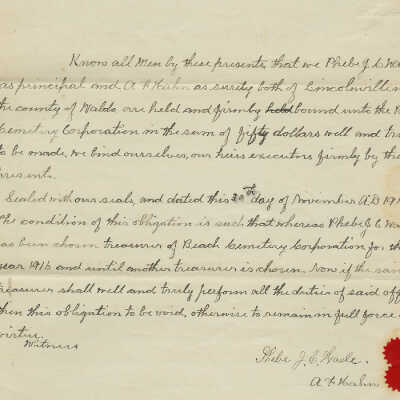 Know all Men by these presents, that we Phebe J. C.
as principal and A F Hahn as surety both of Lincolnville
the county of Waldo are held and firmly held bound unto the
Cemetery Corporation in the sum of fifty dollars well and
to be made, we bind ourselves, our heirs executors firmly by the
presents.
Sealed with our seals, and dated this 20th day of November A.D. 191
The condition of this obligation is such that whereas Phebe J. C.
has been chosen treasurer of Beach Cemetery Corporation for th
year 1916 and until another treasurer is chosen. Now if the
treasurer shall well and truly perform all the duties of said off
then this obligation to be void, otherwise to remain in full force
virtue.
Witness
Phebe J. C.
A F Hahn